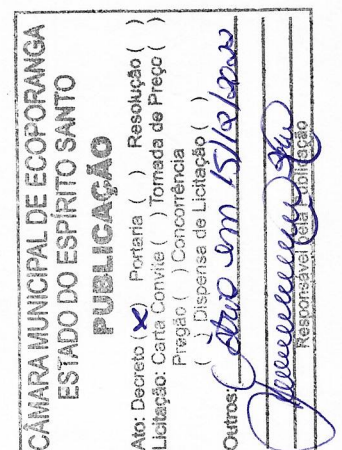 CÂMARA MUNICIPAL DE ECOPORANGA
ESTADO DO ESPÍRITO SANTO
PUBLICAÇÃO
Ato: Decreto (X) Portaria ( ) Resolução ( )
Licitação: Carta Convite ( ) Tomada de Preço ( )
Pregão ( ) Concorrência
( ) Dispensa de Licitação ( )
Outros: em 15/12/2022
Responsável pela Publicação